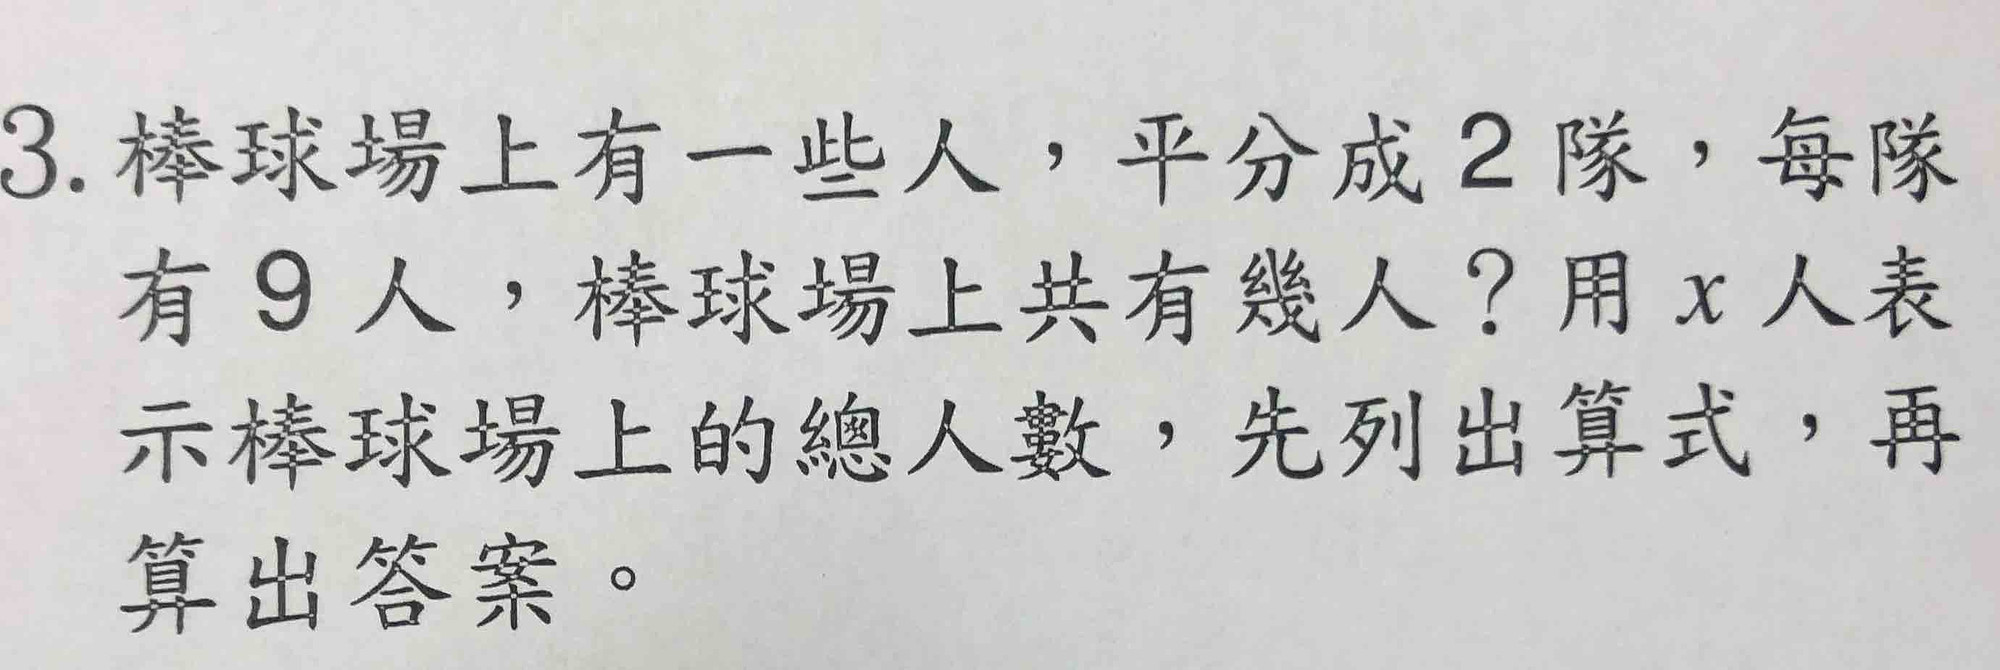 3.棒球場上有一些人，平分成2隊，每隊
有9人，棒球場上共有幾人？用x人表
示棒球場上的總人數，先列出算式，再
算出答案。